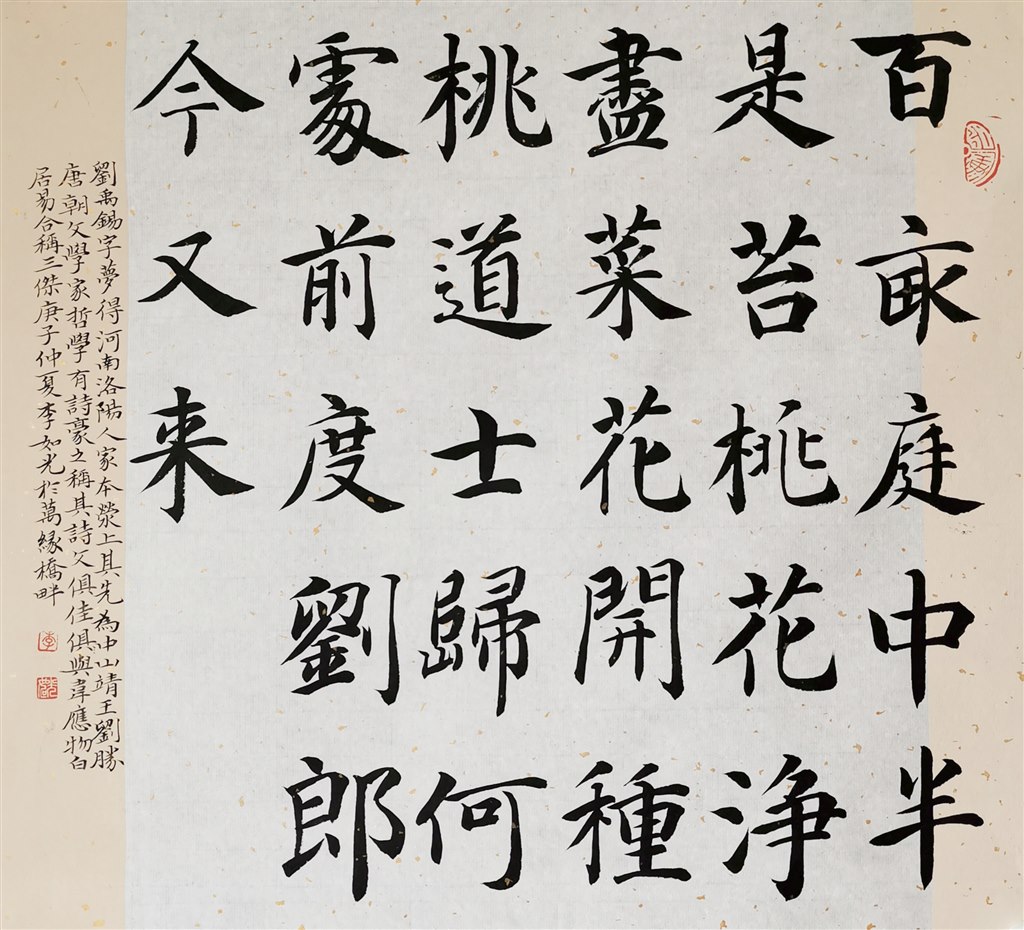 百亩庭中半
是苔桃花浄
盡菜花開種
桃道士歸何
處前度劉郎
今又来
劉禹錫字夢得河南洛陽人家本滎上其先為中山靖王劉勝
唐朝文學家哲學有詩豪之稱其詩文俱佳俱與韋應物白
居易合稱三傑庚子仲夏李如光於萬緣橋畔
李